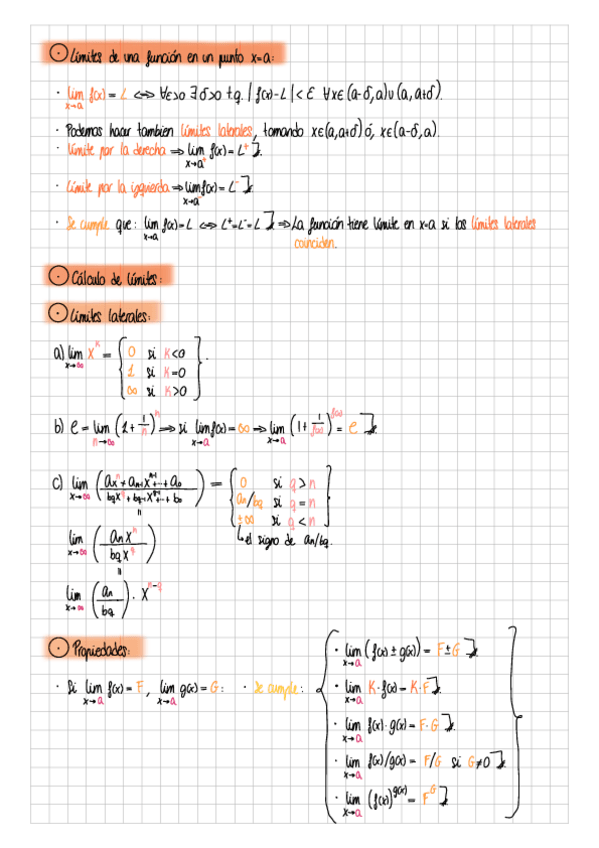 Límites de una función en un punto x=a:
· lim f(x) = L ⟺ ∀ε>0 ∃δ>0 tq. |f(x)-L| < ε ∀x∈(a-δ,a)∪(a,a+δ).
x→a
· Podemos hacer tambien límites laterales, tomando x∈(a,a+δ) ó, x∈(a-δ,a).
· Límite por la derecha ⇒ lim f(x) = L⁺].
x→a⁺
· Límite por la izquierda ⇒ lim f(x) = L⁻].
x→a⁻
· Se cumple que: lim f(x) = L ⟺ L⁺=L⁻=L ] ⇒ La función tiene límite en x=a si los límites laterales
x→a
coinciden.
Cálculo de límites:
Límites laterales:
a) lim x^K = { 0 si K<0
x→∞
1 si K=0
∞ si K>0
b) e = lim (1 + 1/n)^n ⇒ si lim f(x) = ∞ ⇒ lim (1 + 1/f(x))^f(x) = e ].
n→∞ x→a x→a
c) lim (aₙxⁿ + aₙ₋₁xⁿ⁻¹ + ... + a₀ / b_q x^q + b_q-1 x^q-1 + ... + b₀) = { 0 si q > n
x→∞
an/bq si q = n
±∞ si q < n
el signo de an/bq.
lim (an xⁿ / bq x^q)
x→∞
lim (an / bq) · x^n-q
x→∞
Propiedades:
· Si lim f(x) = F, lim g(x) = G: · Se cumple:
x→a x→a
· lim (f(x) ± g(x)) = F±G ].
x→a
· lim K·f(x) = K·F ].
x→a
· lim f(x)·g(x) = F·G ].
x→a
· lim f(x)/g(x) = F/G si G≠0 ].
x→a
· lim (f(x))^g(x) = F^G ].
x→a